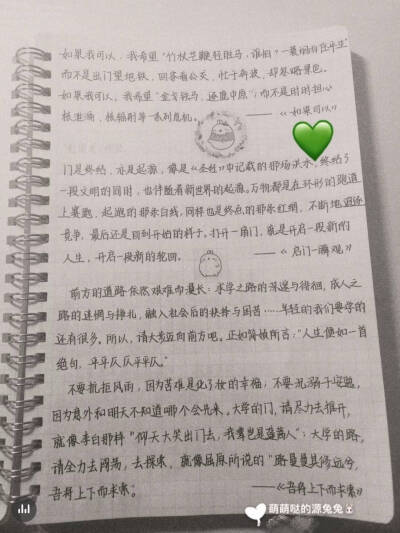 如果我可以，我希望“竹杖芒鞋轻胜马，谁怕？一蓑烟雨任平生”
而不是出门望地铁，回家看公交，忙于奔波，却忽略景色。
如果我可以，我希望“金戈铁马，逐鹿中原”；而不是时时担心
核泄漏，核辐射等一系列危机。 ——《如果可以》
门是终结，亦是起源，像是《圣经》中记载的那场洪水，终结了
一段文明的同时，也伴随着新世界的起源。万物都是在环形的跑道
上赛跑，起跑的那条白线，同样也是终点的那条红绸，不断地追逐
竞争，最后还是回到开始的样子。打开一扇门，就是开启一段新的
人生，开启一段新的轮回。 ——《启门一瞬观》
前方的道路依然艰难而漫长：求学之路的深邃与徘徊，成人之
路的迷惘与挣扎，融入社会后的抉择与困苦……年轻的我们要学的
还有很多。所以，请大步迈向前方吧。正如简媜所言：“人生便如一首
绝句，平平仄仄平平仄。”
不要抗拒风雨，因为苦难是化了妆的幸福，不要沉溺于安逸，
因为意外和明天不知道哪个会先来。大学的门，请尽力去推开，
就像李白那样“仰天大笑出门去，我辈岂是蓬蒿人”；大学的路，
请全力去闯荡，去探索，就像屈原所说的“路曼曼其修远兮，
吾将上下而求索”。 ——《吾将上下而求索》
萌萌哒的源兔兔